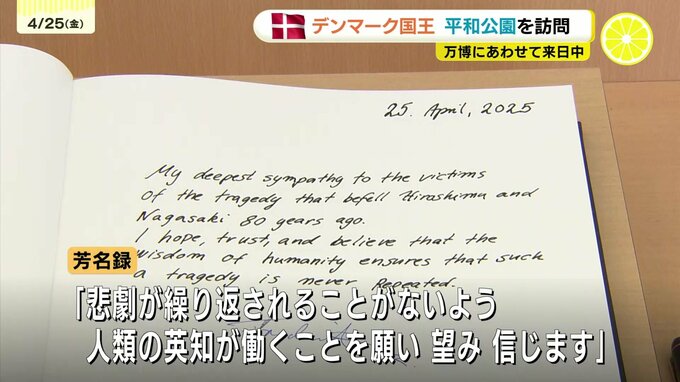 4/25(金)
デンマーク国王 平和公園を訪問
万博にあわせて来日中
25. April, 2025
My deepest sympathy to the victims
of the tragedy that befell Hiroshima and
Nagasaki 80 years ago.
I hope, trust, and believe that the
wisdom of humanity ensures that such
a tragedy is never repeated.
芳名録
「悲劇が繰り返されることがないよう
人類の英知が働くことを願い 望み 信じます」